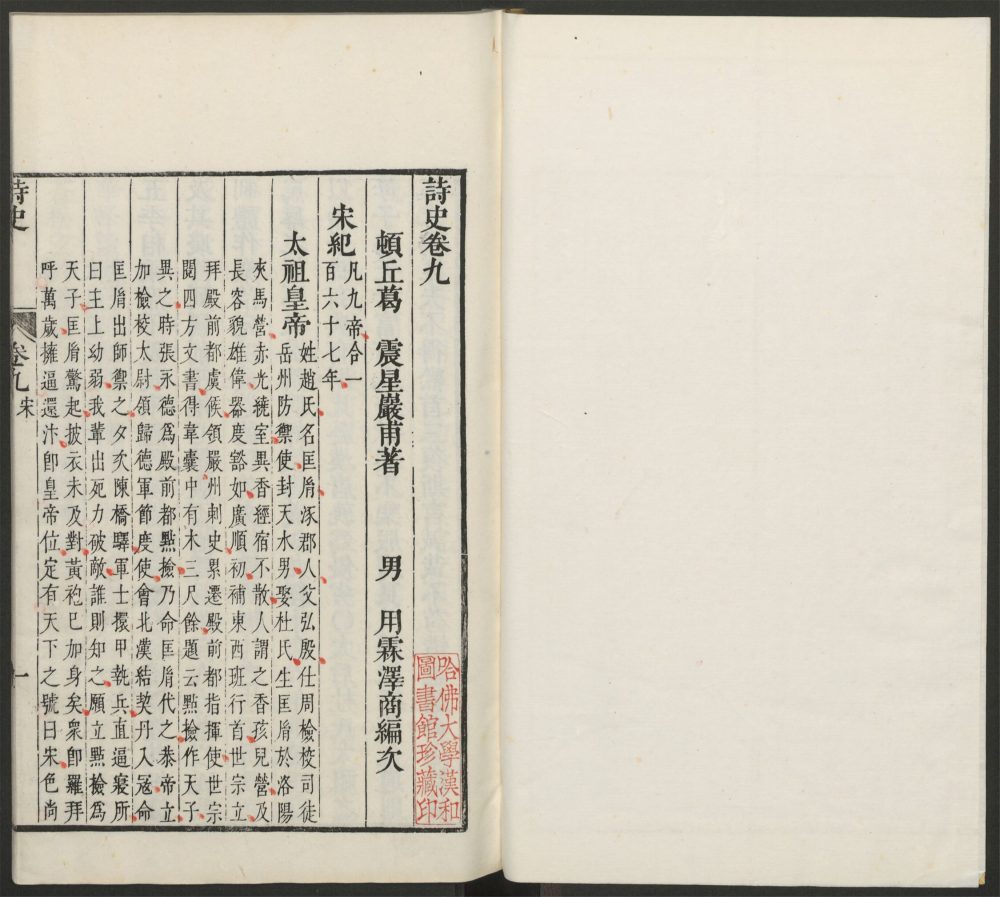 詩史卷九
頓丘葛　震星巖甫著　男　用霖澤商編次
宋紀凡九帝合一
百六十七年
太祖皇帝姓趙氏名匡胤涿郡人父弘殷仕周檢校司徒
岳州防禦使封天水男娶杜氏生匡胤於洛陽
夾馬營赤光繞室異香經宿不散人謂之香孩兒營及
長容貌雄偉器度豁如廣順初補東西班行首世宗立
拜殿前都虞候領嚴州刺史累遷殿前都指揮使世宗
閱四方文書得韋囊中有木三尺餘題云點檢作天子
異之時張永德爲殿前都點撿乃命匡胤代之恭帝立
加檢校太尉領歸德軍節度使會北漢結契丹入寇命
匡胤出師禦之夕次陳橋驛軍士擐甲執兵直逼寢所
曰主上幼弱我輩出死力破敵誰則知之願立點撿爲
天子匡胤驚起披衣未及對黃袍巳加身矣衆卽羅拜
呼萬歲擁逼還汴卽皇帝位定有天下之號曰宋色尚
詩史
卷九　宋
一
哈佛大學漢和
圖書館珍藏印